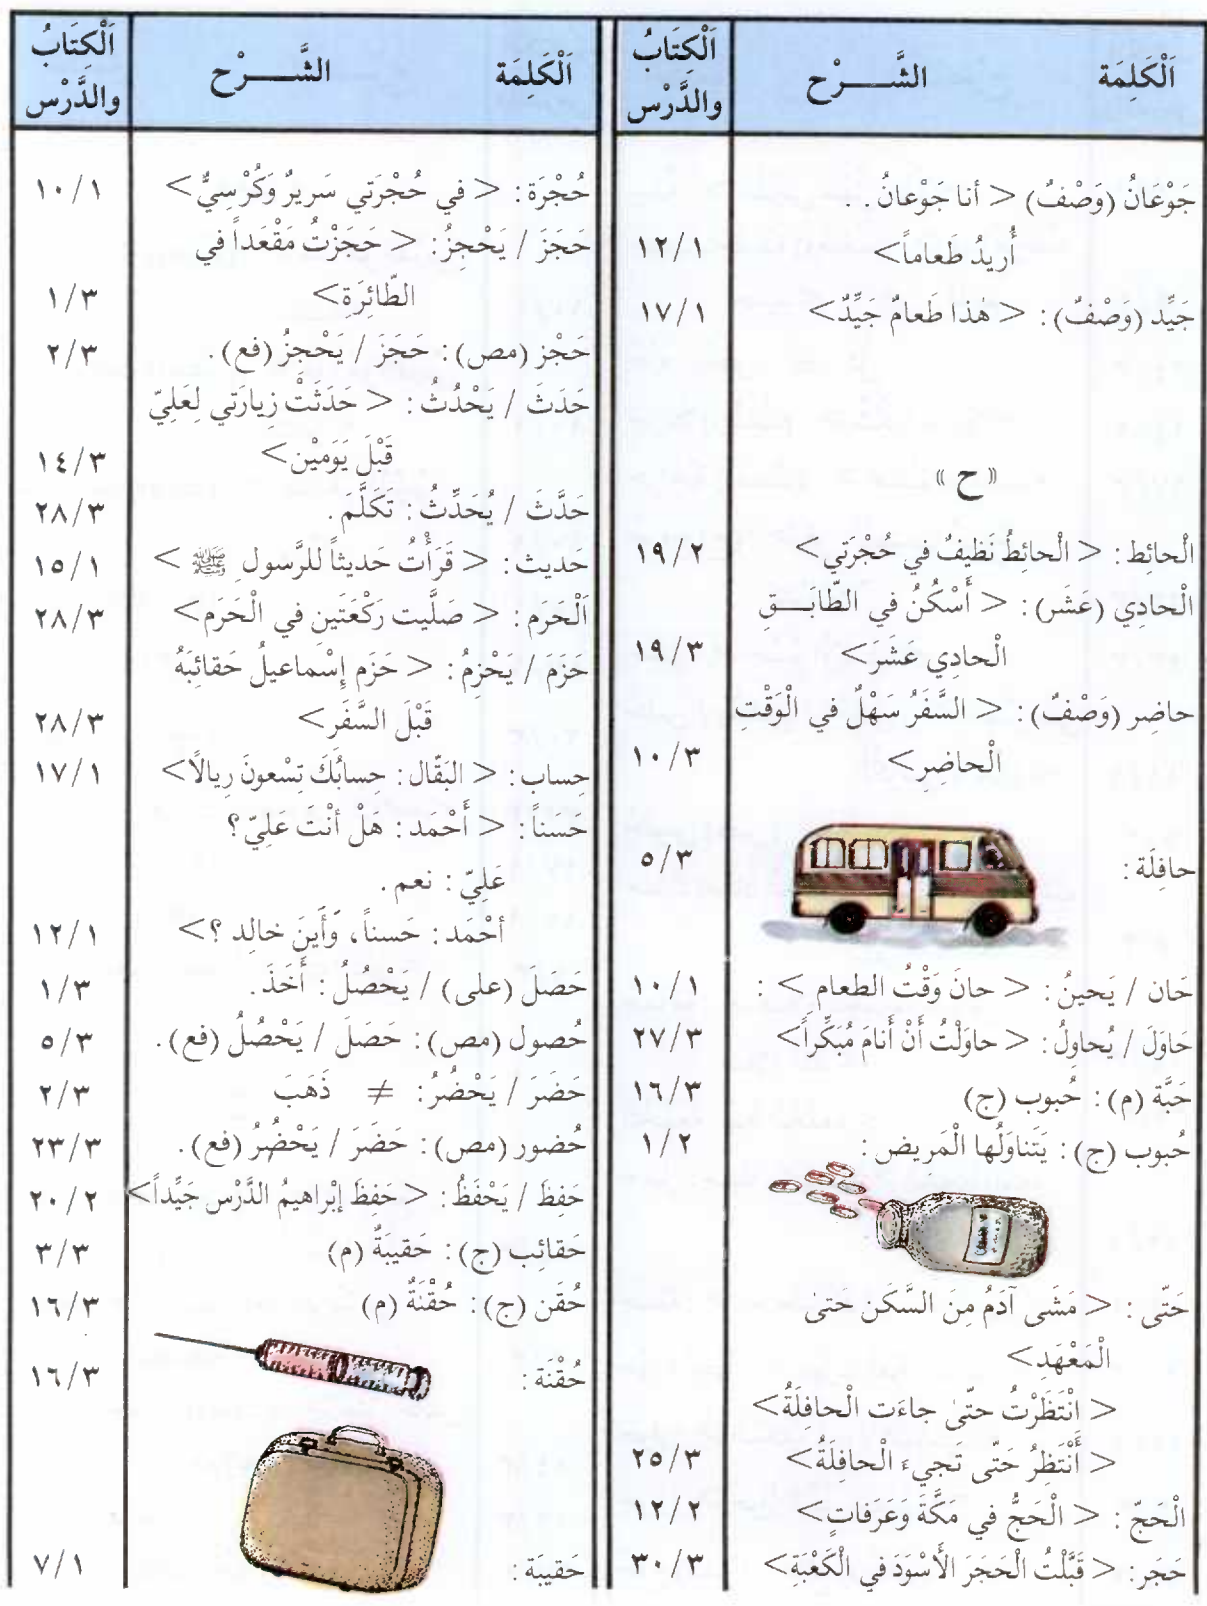 اَلْكَلِمَة الشَّـــرْح اَلْكِتَابُ والدَّرْس
جَوْعَانُ (وَصْفٌ) < أنا جَوْعانُ . .
أُريدُ طَعاماً> ١٢/١
جَيِّد (وَصْفٌ) : < هٰذا طَعامٌ جَيِّدٌ> ١٧/١
« ح »
الْحائِط : < الْحائِطُ نَظيفٌ في حُجْرَتي> ١٩/٢
الْحادِي (عَشَر) : < أَسْكُنُ في الطّابَـــقِ
الْحادِي عَشَرَ> ١٩/٣
حاضِر (وَصْفٌ) : < السَّفَرُ سَهْلٌ في الْوَقْتِ
الْحاضِرِ> ١٠/٣
حافِلَة : ٥/٣
حَان / يَحينُ : < حانَ وَقْتُ الطعام > : ١٠/١
حَاوَلَ / يُحاوِلُ : < حاوَلْتُ أَنْ أَنامَ مُبَكِّراً> ٢٧/٣
حَبَّة (م) : حُبوب (ج) ١٦/٣
حُبوب (ج) : يَتَناوَلُها الْمَريض : ١/٢
حَتّى : < مَشَى آدَمُ مِنَ السَّكَن حَتىٰ
الْمَعْهَدِ>
< انْتَظَرْتُ حتّىٰ جاءَت الْحافِلَةُ>
< أَنْتَظِرُ حَتّى تَجيءَ الْحافِلَةُ> ٢٥/٣
الْحَجّ : < الْحَجُّ في مَكَّةَ وَعَرَفاتٍ> ١٢/٢
حَجَر : < قَبَّلْتُ الْحَجَرَ الأَسْوَدَ في الْكَعْبَةِ> ٣٠/٣
اَلْكَلِمَة الشَّـــرْح اَلْكِتَابُ والدَّرْس
حُجْرَة : < في حُجْرَتي سَريرٌ وَكُرْسِيٌّ> ١٠/١
حَجَزَ / يَحْجِزُ : < حَجَزْتُ مَقْعَداً في
الطّائِرَةِ> ١/٣
حَجْز (مص) : حَجَزَ / يَحْجِزُ (فع) . ٢/٣
حَدَثَ / يَحْدُثُ : < حَدَثَتْ زِيارَتي لِعَلِيّ
قَبْلَ يَوَمَيْن> ١٤/٣
حَدَّثَ / يُحَدِّثُ : تَكَلَّمَ . ٢٨/٣
حَديث : < قَرَأْتُ حَديثاً للرَّسول ﷺ > ١٥/١
اَلْحَرَم : < صَلَّيت رَكْعَتَين في الْحَرَم> ٢٨/٣
حَزَمَ / يَحْزِمُ : < حَزَم إِسْماعيلُ حَقائِبَهُ
قَبْلَ السَّفَر> ٢٨/٣
حِساب : < البَقّال : حِسابُكَ تِسْعونَ رِيالًا> ١٧/١
حَسَناً : < أَحْمَد : هَلْ أَنْتَ عَلِيّ؟
عَلِيّ : نعم .
أحْمَد : حَسناً، وَأَينَ خالِد ؟> ١٢/١
حَصَلَ (على) / يَحْصُلُ : أَخَذَ . ١/٣
حُصول (مص) : حَصَلَ / يَحْصُلُ (فع) . ٥/٣
حَضَرَ / يَحْضُرُ : ≠ ذَهَبَ ٢/٣
حُضور (مص) : حَضَرَ / يَحْضُرُ (فع) . ٢٣/٣
حَفِظَ / يَحْفَظُ : < حَفِظَ إبْراهيمُ الدَّرْس جَيِّداً> ٢٠/٢
حَقائِب (ج) : حَقيبَةٌ (م) ٣/٣
حُقَن (ج) : حُقْنَةٌ (م) ١٦/٣
حُقْنَة : ١٦/٣
حَقيبَة : ٧/١